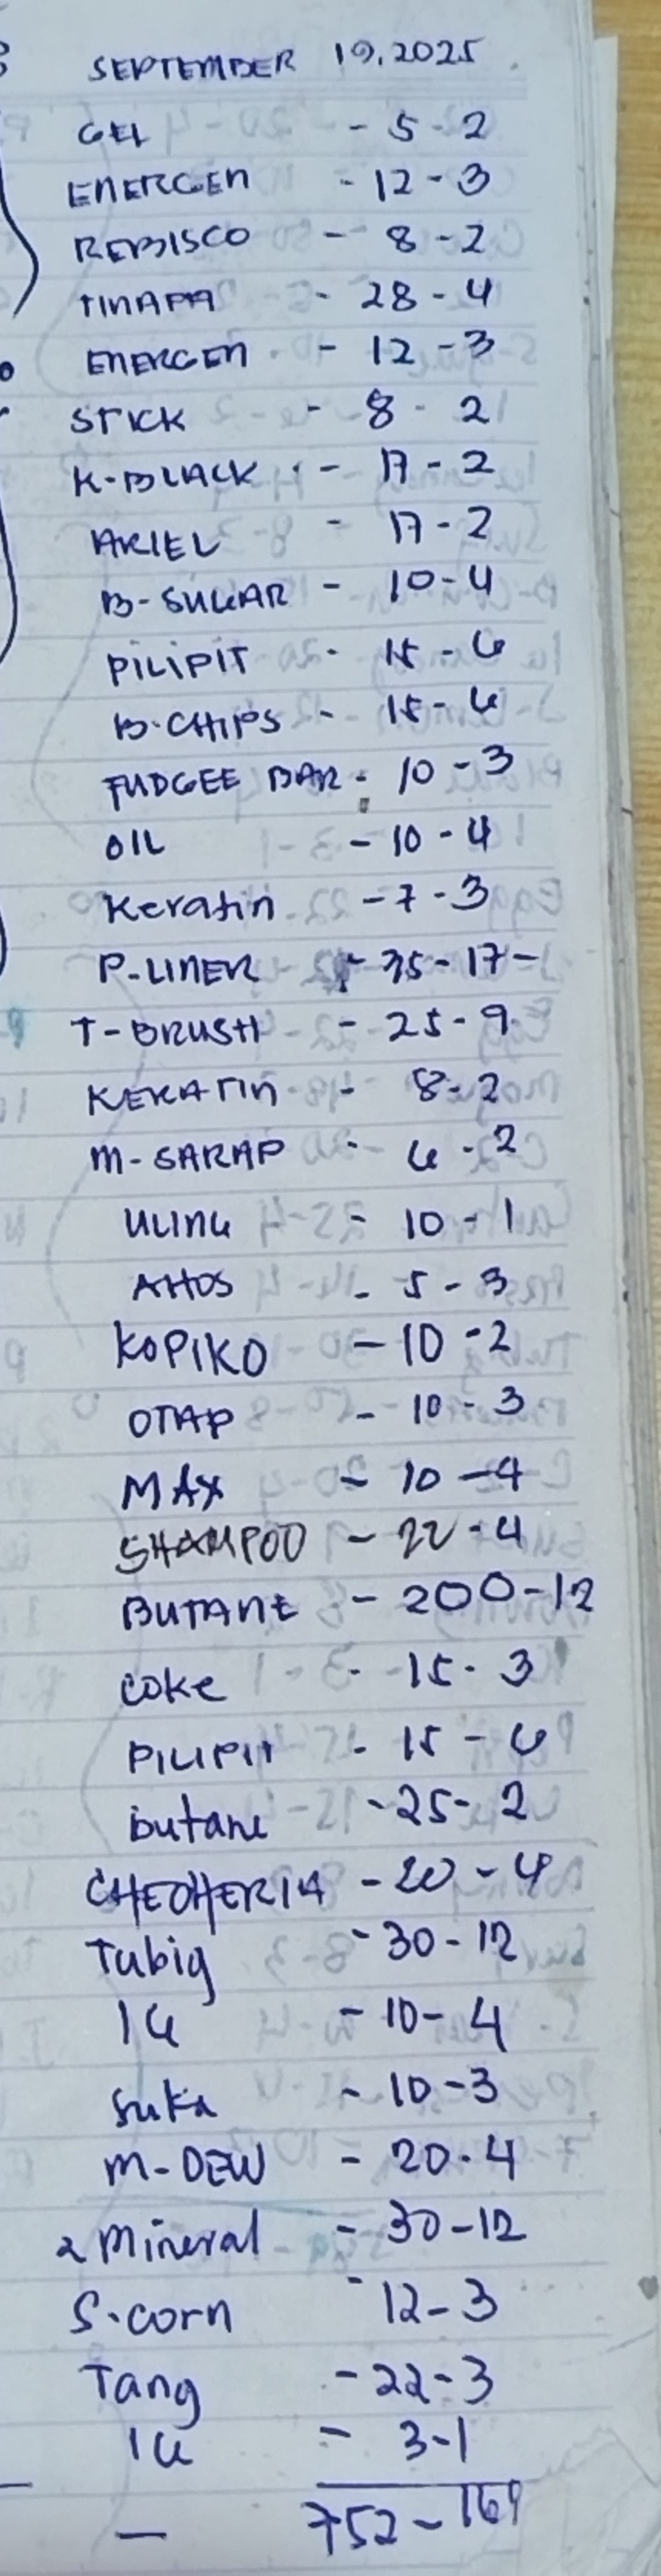 SEPTEMBER 19, 2025
GEL - 5 - 2
ENERGEN - 12 - 3
REBISCO - 8 - 2
TINAPA - 28 - 4
ENERGEN - 12 - 3
STICK - 8 - 2
K-BLACK - 17 - 2
ARIEL - 17 - 2
B-SUGAR - 10 - 4
PILIPIT - 15 - 6
B-CHIPS - 15 - 6
FUDGEE BAR - 10 - 3
OIL - 10 - 4
Keratin - 7 - 3
P-LINER - 35 - 17 -
T-BRUSH - 25 - 9
KERATIN - 8 - 2
M-SARAP - 6 - 2
ULING - 10 - 1
AHOS - 5 - 3
KOPIKO - 10 - 2
OTAP - 10 - 3
MAX - 10 - 4
SHAMPOO - 22 - 4
BUTANE - 200 - 12
COKE - 15 - 3
PILIPIT - 15 - 6
butane - 25 - 2
CHECHERIA - 20 - 4
Tubig - 30 - 12
- 10 - 4
Suka - 10 - 3
M-DEW - 20 - 4
2 Mineral - 30 - 12
S-corn - 12 - 3
Tang - 22 - 3
- 3 - 1
752 - 169